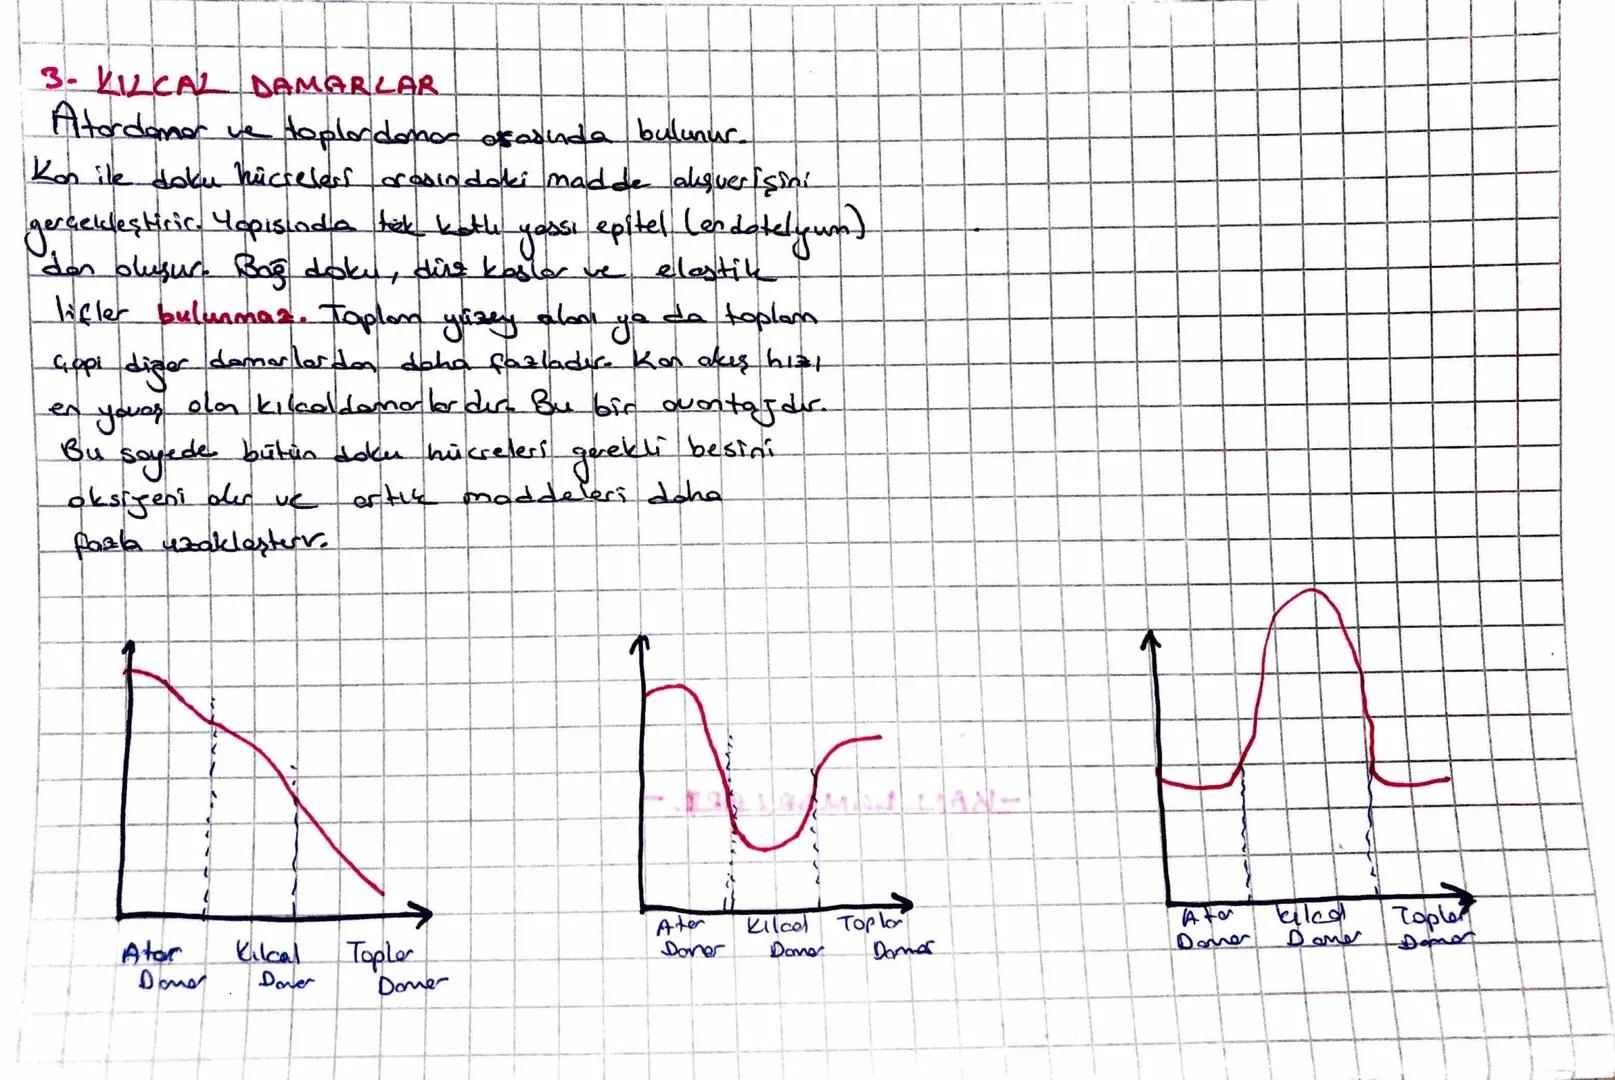 3- KILCAL DAMARLAR
Atardamar ve toplardamar arasında bulunur.
Kan ile doku hücreleri arasındaki madde alışverişini
gerçekleştirir. Yapısında tek katlı yassı epitel (endotelyum)
dan oluşur. Bağ doku, düz kaslar ve elastik
lifler bulunmaz. Toplam yüzey alanı ya da toplam
çapı diğer damarlardan daha fazladır. Kan akış hızı
en yavaş olan kılcaldamarlardır. Bu bir avantajdır.
Bu sayede bütün doku hücreleri gerekli besini
oksijeni alır ve artık maddeleri daha
fazla uzaklaştırır.
Atar Damar
Kılcal Damar
Toplar Damar
Atar Damar
Kılcal Damar
Toplar Damar
Atar Damar
Kılcal Damar
Toplar Damar